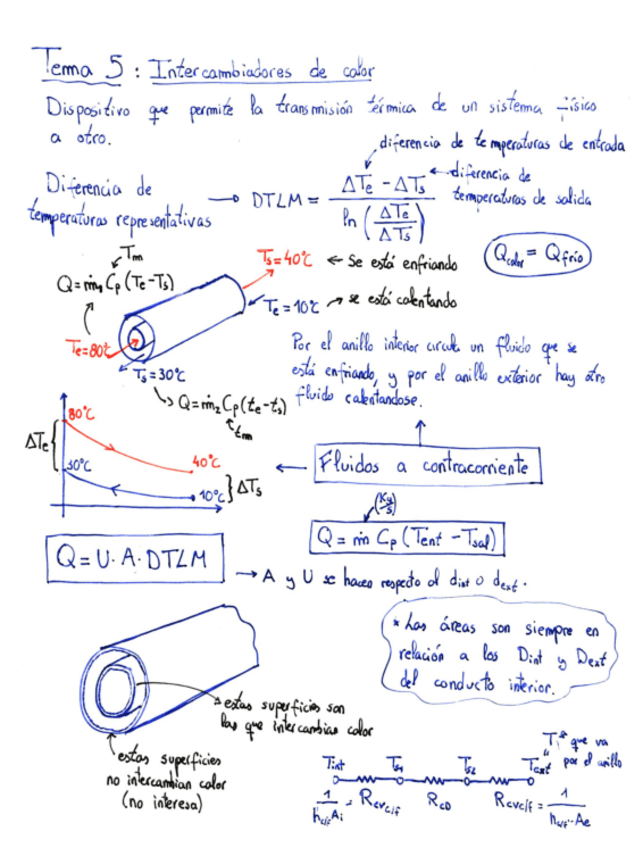 Tema 5 : Intercambiadores de calor
Dispositivo que permite la transmisión térmica de un sistema físico
a otro.
diferencia de temperaturas de entrada
Diferencia de
temperaturas representativas
→ DTLM = (ΔTe - ΔTs) / ln (ΔTe / ΔTs)
diferencia de
temperaturas de salida
Tm
Q = ṁ₁ Cp (Te - Ts)
Ts = 40°C ← Se está enfriando
Qcalor = Qfrío
Te = 10°C → se está calentando
Te = 80°C
Ts = 30°C
Q = ṁ₂ Cp (te - ts)
tm
Por el anillo interior circula un fluido que se
está enfriando, y por el anillo exterior hay otro
fluido calentandose.
80°C
ΔTe
30°C
40°C
10°C
ΔTs
Fluidos a contracorriente
(Kg/s)
Q = ṁ Cp (Tent - Tsal)
Q = U · A · DTLM
→ A y U se hacen respecto al dint o dext.
* Las áreas son siempre en
relación a los Dint y Dext
del conducto interior.
estas superficies son
las que intercambian calor
estas superficies
no intercambian calor
(no interesa)
Tint Ts1 Ts2 Text
que va
por el anillo
1 / hc/f Ai = Rcvc/f
RCD
Rcvc/f = 1 / hc/f · Ae